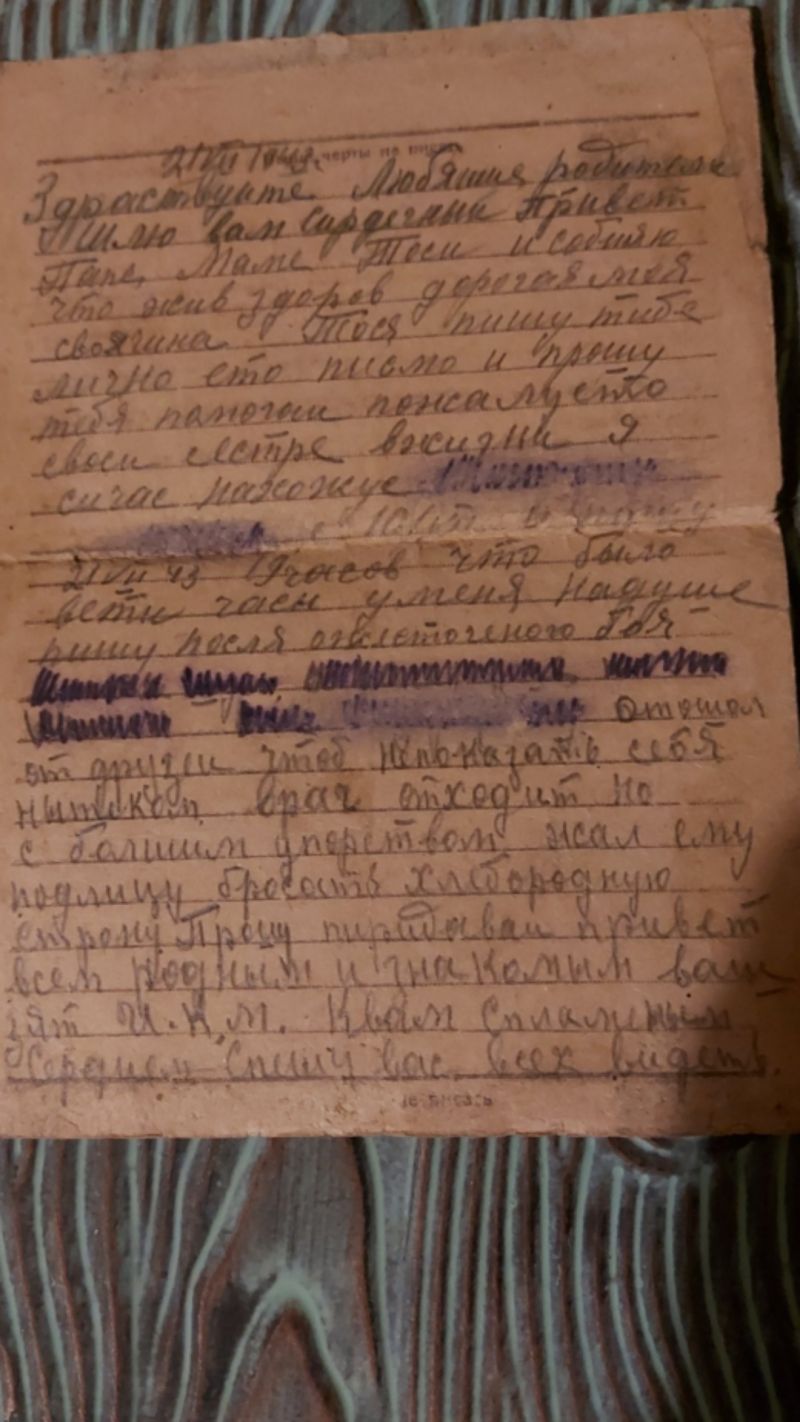 21/VII
Здраствуите Любящие родители
Шлю вам сирдечныи привет
Папе, Маме Тоси и собщяю
что жив здоров дорогая моя
своячина Тося пишу тибе
лично ето письмо и прошу
тебя помогаи пожалуесто
своеи сестре вжизни я
сичас нахожус
21/VII 43 19часов что было
вети часы уменя надуше
пишу посля ожлеточеного боя
отошол
от друзеи чтоб непоказать себя
нытиком враг отходит но
с болшим упорством жал ему
подлицу бросать хлебородную
строну Прошу пиридаваи привет
всем родным и знакомым ваш
зят И.К.М. Квам Спламеным
Сердцем Спишу вас всех видеть.